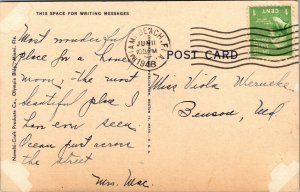 THIS SPACE FOR WRITING MESSAGES
Most wonderful
place for a honey
moon, the most
beautiful place I
have ever seen
Ocean just across
the street
Mrs. Mac
POST CARD
Miss Viola Wernecke
Benson, Md
MIAMI BEACH, FLA.
JUN 11
1948
1 CENT 1